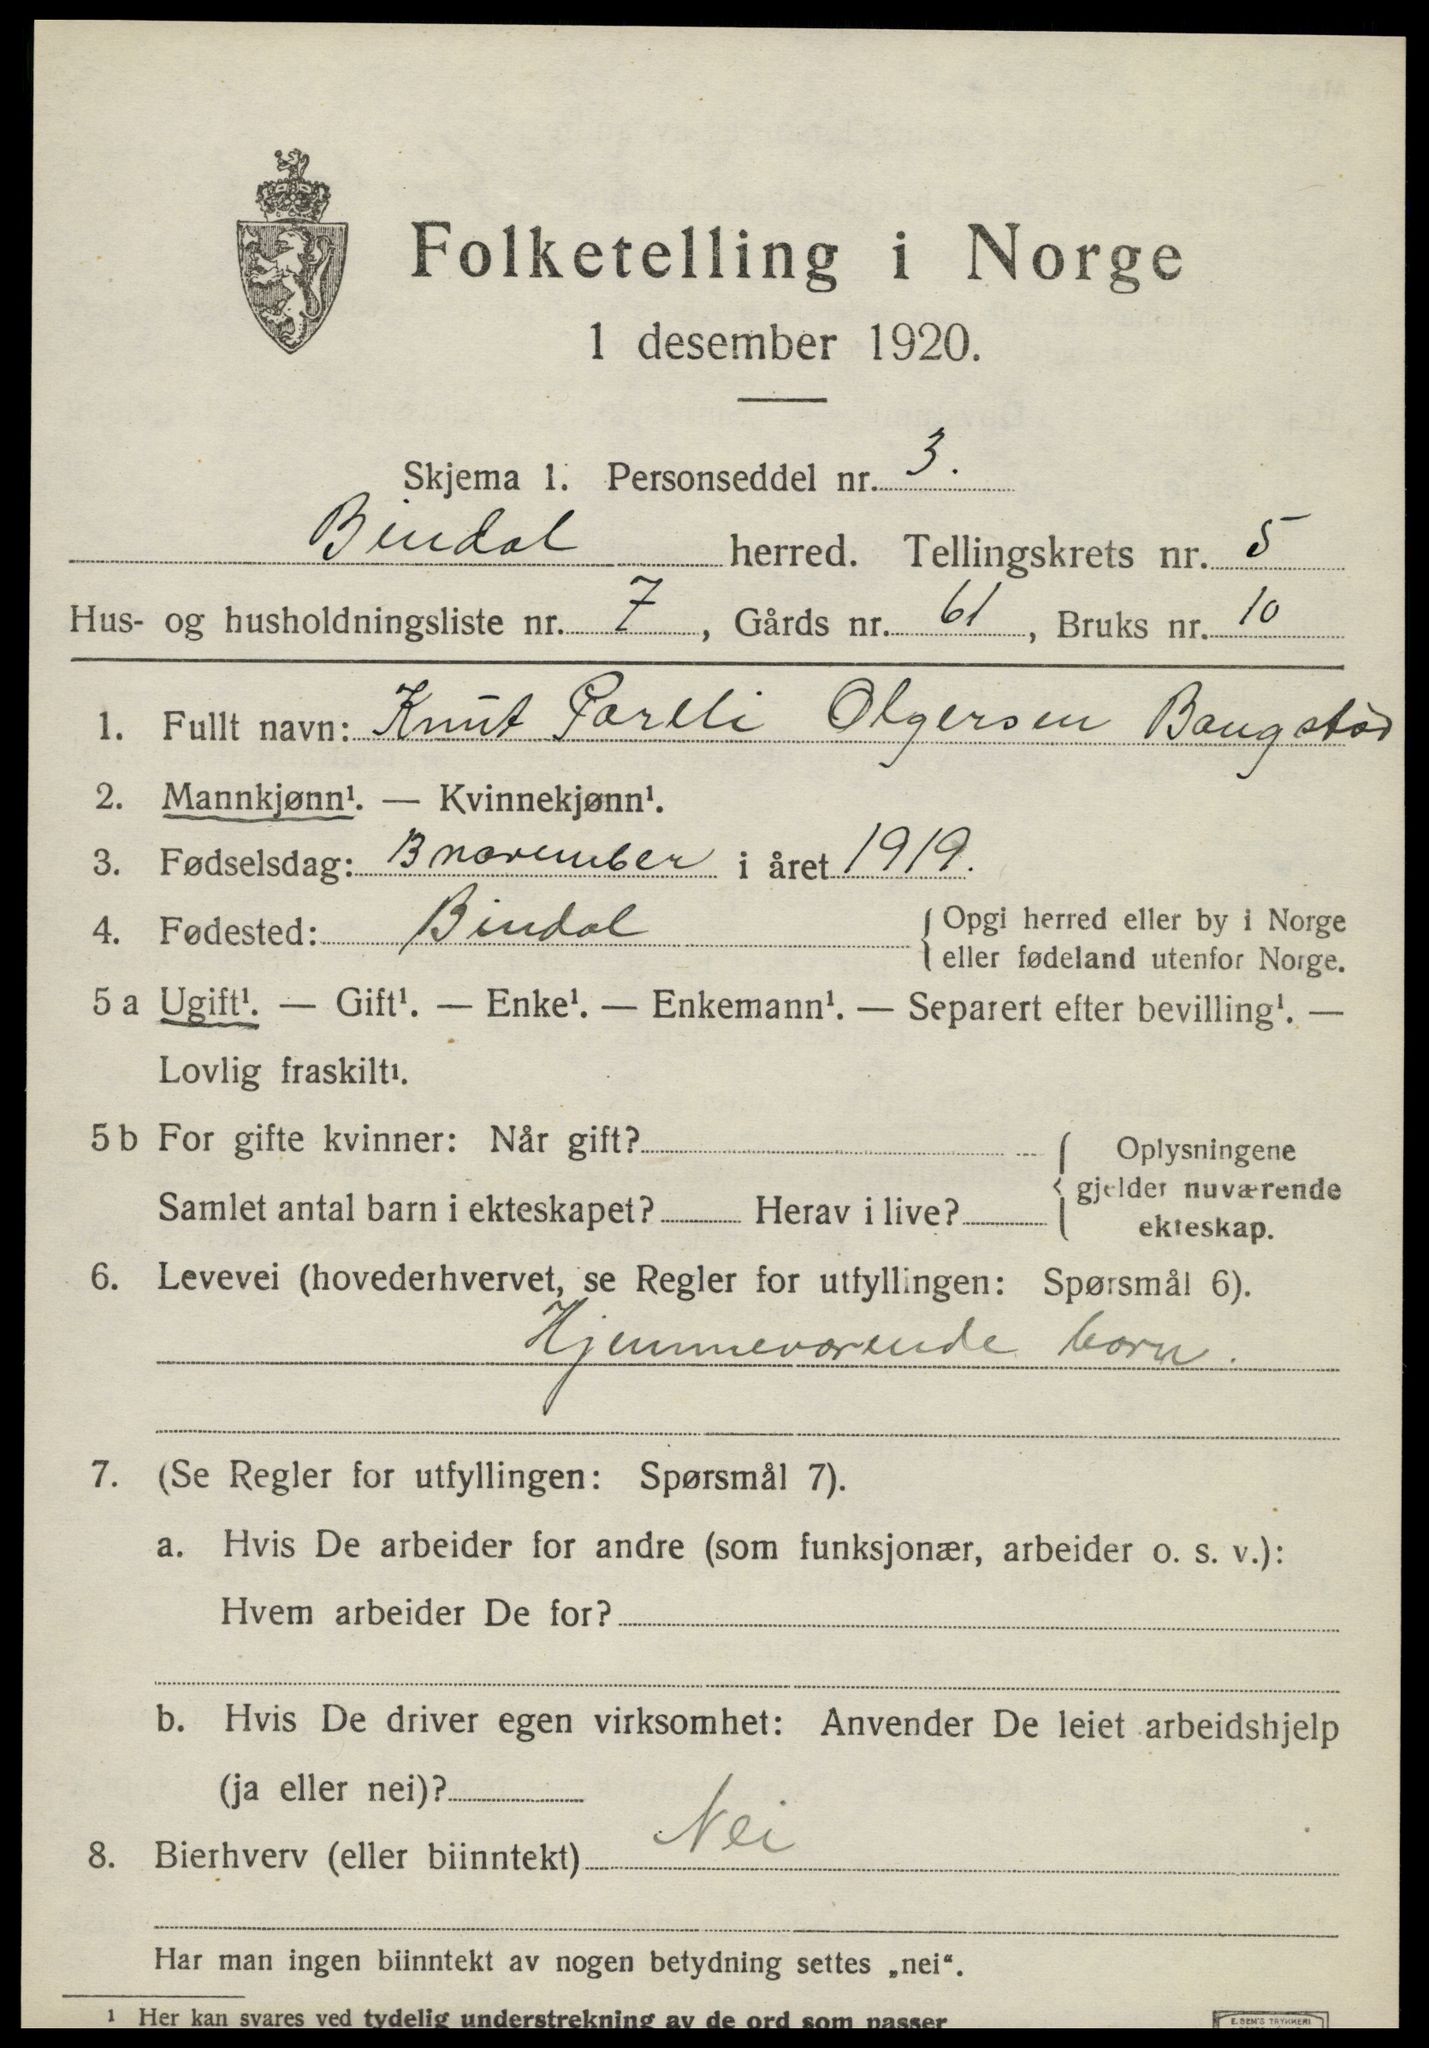 Folketelling i Norge
1 desember 1920.
Skjema 1. Personseddel nr. 3.
Bindal herred. Tellingskrets nr. 5
Hus- og husholdningsliste nr. 7, Gårds nr. 61, Bruks nr. 10
1. Fullt navn: Knut Olgersen Baugstød
2. Mannkjønn¹. — Kvinnekjønn¹.
3. Fødselsdag: november i året 1919.
4. Fødested: Bindal { Opgi herred eller by i Norge
eller fødeland utenfor Norge.
5 a Ugift¹. — Gift¹. — Enke¹. — Enkemann¹. — Separert efter bevilling¹. —
Lovlig fraskilt¹.
5 b For gifte kvinner: Når gift? { Oplysningene
gjelder nuværende
Samlet antal barn i ekteskapet? Herav i live?
ekteskap.
6. Levevei (hovederhvervet, se Regler for utfyllingen: Spørsmål 6).
Hjemmeværende barn.
7. (Se Regler for utfyllingen: Spørsmål 7).
a. Hvis De arbeider for andre (som funksjonær, arbeider o. s. v.):
Hvem arbeider De for?
b. Hvis De driver egen virksomhet: Anvender De leiet arbeidshjelp
(ja eller nei)?
8. Bierhverv (eller biinntekt) Nei
Har man ingen biinntekt av nogen betydning settes „nei“.
¹ Her kan svares ved tydelig understrekning av de ord som passer
E. SEM'S TRYKKERI